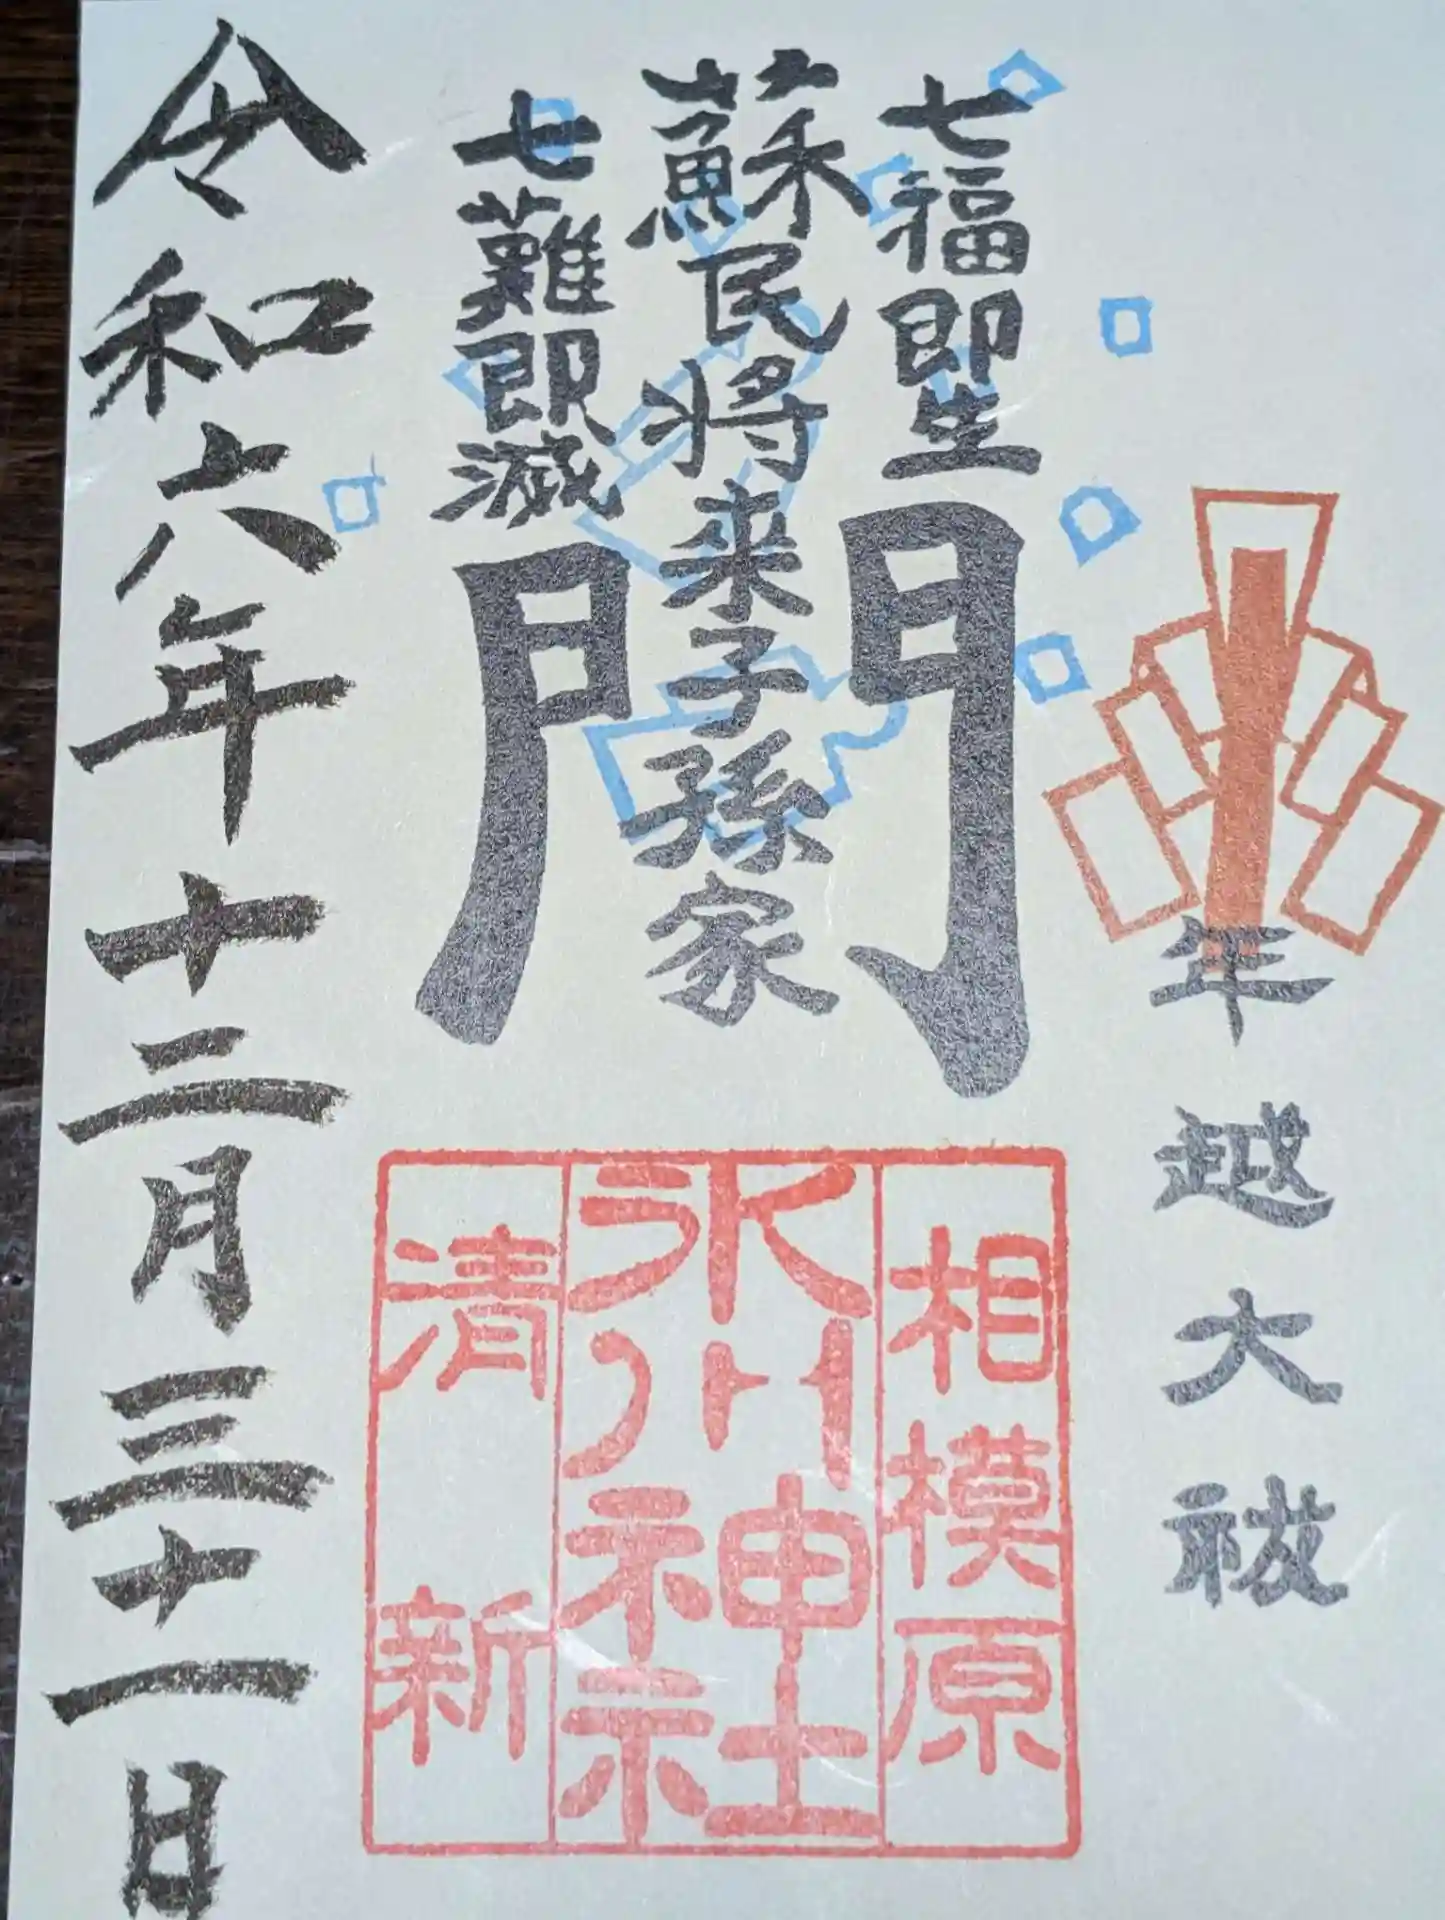 年越大祓
七福即生
蘇民将来子孫家
七難即滅
門
相模原
氷川神社
清新
令和六年十二月三十一日